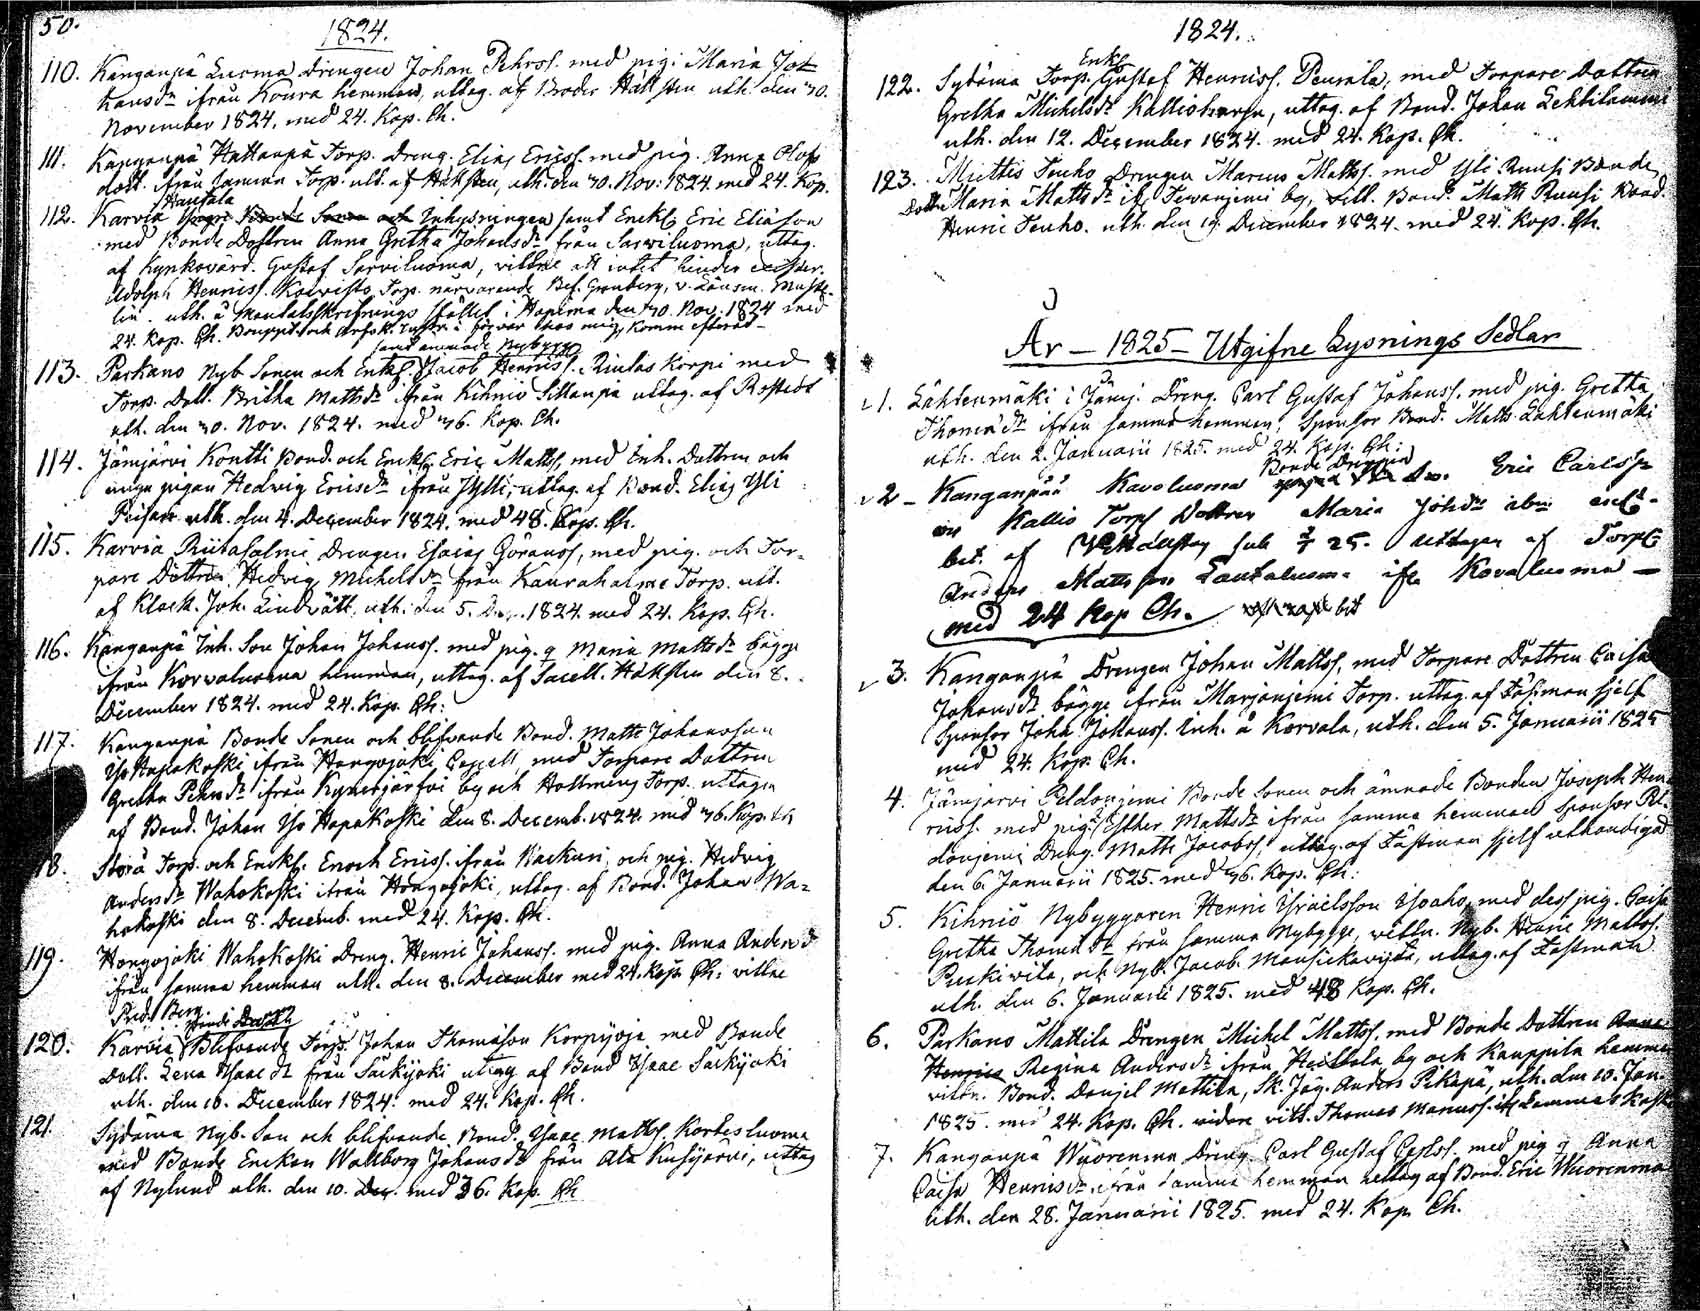 50.
1824.
110. Kanganpä Luoma Drengen Johan Pehrss. med pig. Maria Jo-
hansdr ifrån Koura hemman, uttag. af Broder Häksten uth. den 30.
November 1824. med 24. Kop. Ch.
111. Kanganpä Hattanpä Torp. Dreng. Elias Ericss. med pig. Anna Olofs
dott. ifrån samma Torp. utt. af Häksten, uth. den 30. Nov. 1824. med 24. Kop.
112. Karvia Inhysningen samt Enckl. Eric Eliasson
med Bonde Dottren Anna Gretha Johansdr från Sarviluoma, uttag.
af Kyrkovärd. Gustaf Sarviluoma, vittne att intet hinder
Adolph Henricss. Koivisto Torp. närvarande Bef. Grönberg, v. Länsm.
lin. uth. å Mantalsskrifnings stället i den 30. Nov. 1824 med
24. Kop. Ch.
samt ämnade Nybygg
113. Parkano Nyb. Sonen och Enkl. Jacob Henricss. Korpi med
Torp. Dott. Britha Mattsdr ifrån Kihniö Sillanpä uttag. af Rostedt
uth. den 30. Nov. 1824. med 36. Kop. Ch.
114. Jämijärvi Kontti Bond. och Enckl. Eric Mattss. med Inh. Dottren och
unga pigan Hedvig Ericsdr ifrån Ylli, uttag. af Bond. Elias Yli
uth. den 4. December 1824. med 48. Kop. Ch.
115. Karvia Riitasalmi Drengen Esaias Göranss. med pig. och Tor-
pare Dottren Hedvig Michelsdr från Kauraharju Torp. utt.
af Klock. Joh. Lindvall, uth. den 5. Dec. 1824. med 24. Kop. Ch.
116. Kanganpä Inh. Son Johan Johanss. med pig. q Maria Mattsdr bägge
ifrån Korvaluoma hemman, uttag. af Sacell. Häksten den 8.
December 1824. med 24. Kop. Ch.
117. Kanganpä Bonde Sonen och blifvande Bond. Matts Johansson
Yso Hapakoski ifrån Hongojoki Capell, med Torpare Dottren
Gretha Pehrsdr ifrån Kynäsjärfvi by och Hollming Torp. uttagen
af Bond. Johan Yso Hapakoski den 8. Decemb. 1824. med 36. Kop. Ch
18. Storå Torp. och Enckl. Enoch Ericss. ifrån och pig. Hedvig
Andersdr Wahokoski ifrån Hongojoki, uttag. af Bond. Johan Wa-
hokoski den 8. Decemb. med 24. Kop. Ch.
119. Hongojoki Wahokoski Dreng. Henric Johanss. med pig. Anna Andersd
ifrån samma hemman uth. den 8. December med 24. Kop. Ch. vittne
Pred. Berg.
120. Karvia Blifvande Torp. Johan Thomasson Korpyoja med Bonde
Dott. Lena Ysaacdr från Särkijoki uttag af Bond Ysaac Särkijoki
uth. den 10. December 1824. med 24. Kop. Ch.
121. Sydänia Nyb. Son och blifvande Bond. Ysaac Mattss. Kortesluoma
med Bonde Enckan Wallborg Johansdr från Ala Kusijarvi, uttag
af Nylund uth. den 10. Dec. med 36. Kop. Ch
1824.
Enkl
122. Sydänia Torp. Gustaf Henricss. Peurala, med Torpare Dottren
Gretha Michelsdr Kallioharju, uttag. af Bond. Johan Lehtilammi
uth. den 12. December 1824. med 24. Kop. Ch.
123. Miettis Tenho Drengen Marcus Mattss. med Yli Ruusi Bonde
Dott. Maria Mattsdr if. Tevanjemi by, vitt. Bond. Matts Ruusi Bond.
Henric Tenho. uth. den 19. December 1824. med 24. Kop. Ch.
År - 1825 - Utgifne Lysnings Sedlar
1. Lähteenmäki i Jämij. Dreng. Carl Gustaf Johanss. med pig. Gretha
Thomædr ifrån samma hemman, Sponsor Bond. Matts Lähteenmäki
uth. den 2. Januarii 1825. med 24. Kop. Ch.
2 - Kanganpää Kavoluoma Bonde Drengen Eric Carlss
en Kallio Torps Dottren Maria Johdr
bet. af sub 25. uttagen af Torp.
Anders Mattsson Lautaluoma ifr. Kovaluoma -
med 24 Kop Ch.
3. Kanganpä Drengen Johan Mattss. med Torpare Dottren Caisa
Johansdr bägge ifrån Marjanjemi Torp. uttag. af Fästman sjelf
Sponsor Joha Johanss. Inh. å Korvala, uth. den 5. Januarii 1825
med 24. Kop. Ch.
4. Jämijarvi Peldonjemi Bonde Sonen och ämnade Bonden Joseph Hen-
ricss. med pig. Esther Mattsdr ifrån samma hemman Sponsor Pel-
donjemi Dreng. Matts Jacobss. uttag. af Fästman sjelf uthandigad
den 6. Januarii 1825. med 36. Kop. Ch.
5. Kihniö Nybyggaren Henric Ysraelsson Ysoaho, med dess pig. Caisa
Gretha Thomædr från samma Nybygge, vittn. Nyb. Henric Mattss.
och Nyb. Jacob uttag. af Fästman
uth. den 6. Januarii 1825. med 48 Kop. Ch.
6. Parkano Mattila Drengen Michel Mattss. med Bonde Dottren Anna
Henrics Regina Andersdr ifrån Heittola by och Kauppila hemman
vittn. Bond. Daniel Mattila, Sk. Jag. Anders Pikapä, uth. den 10. Jan.
1825. med 24. Kop. Ch. vidare vitt. Thomas Manuss.
7. Kanganpä Wuorenma Dreng Carl Gustaf Carlss. med pig q Anna
Caisa Henricsdr ifrån samma hemman uttag af Bond. Eric Wuorenma
uth. den 28. Januarii 1825. med 24. Kop Ch.